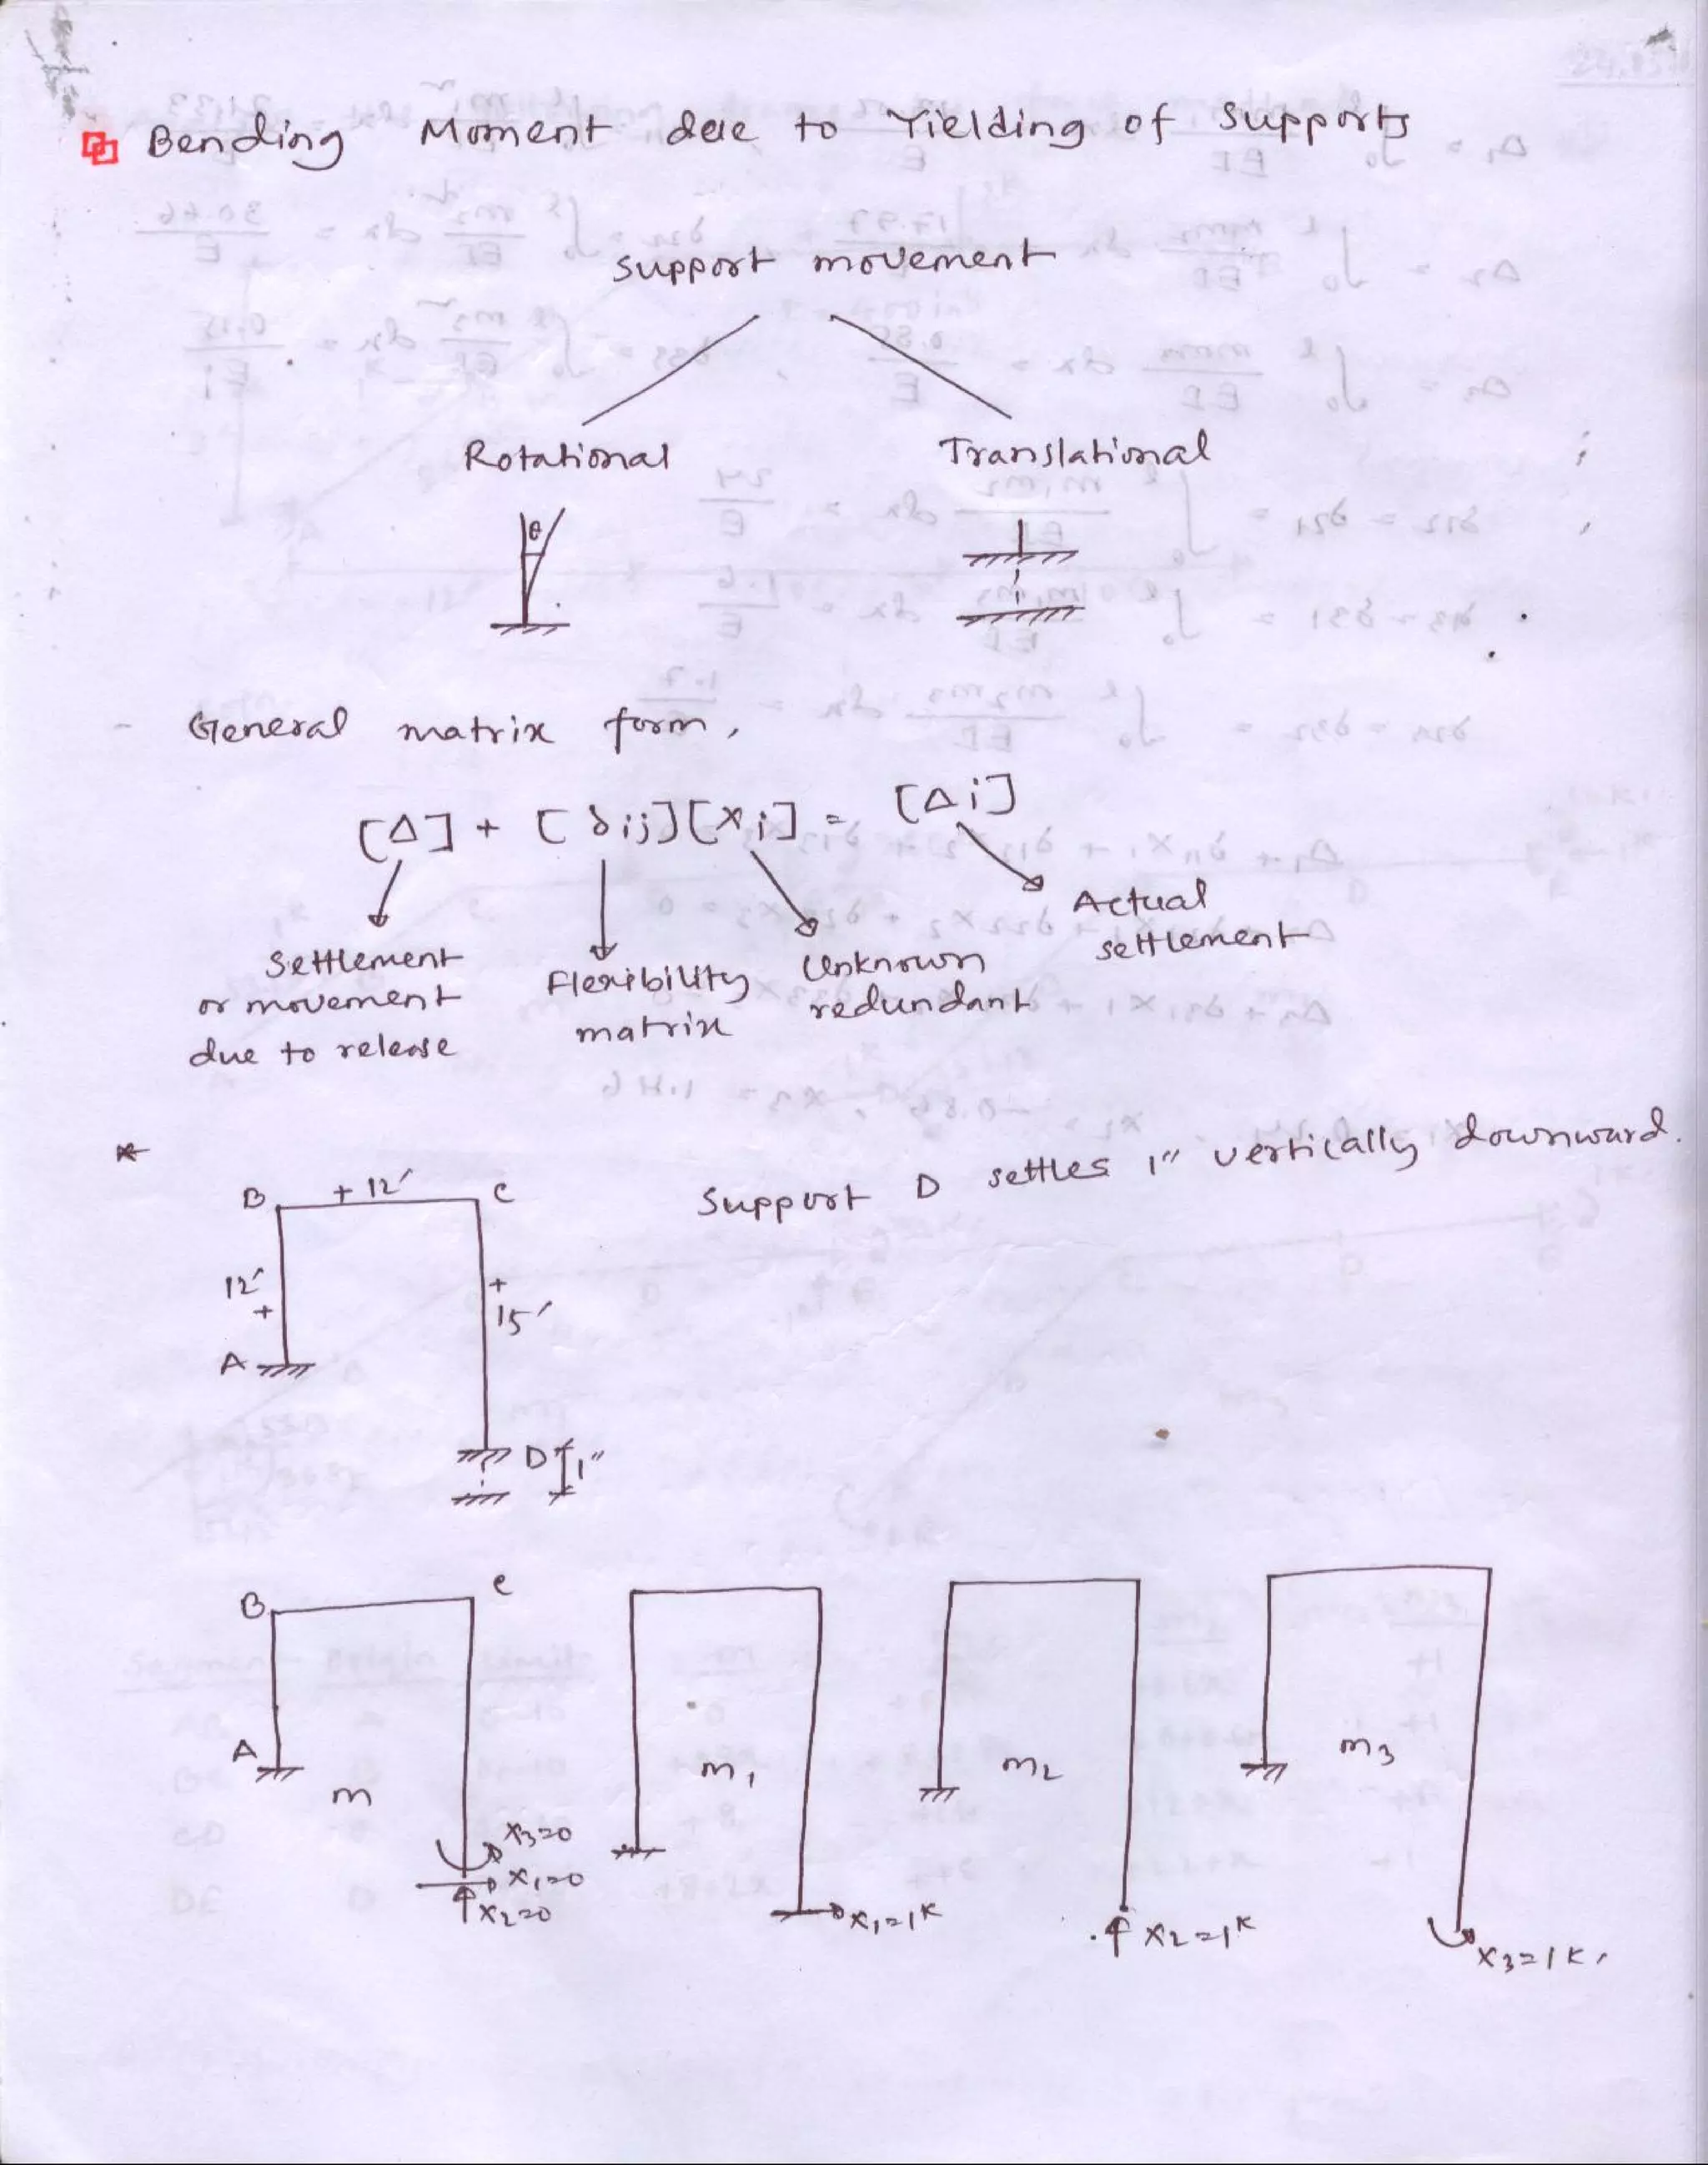 Bending Moment due to Yielding of Supports
support movement
Rotational Translational
θ
General matrix form,
[Δ] + [δij][xi] = [Δi]
Settlement or movement due to release
Flexibility matrix
Unknown redundant
Actual settlement
* Support D settles 1" vertically downward.
B + 12' C
12' +
+ 15'
A
D 1"
B C
A
m
m1
m2
m3
x3=0
x1=0
x2=0
x1=1K
x2=1K
x3=1K'